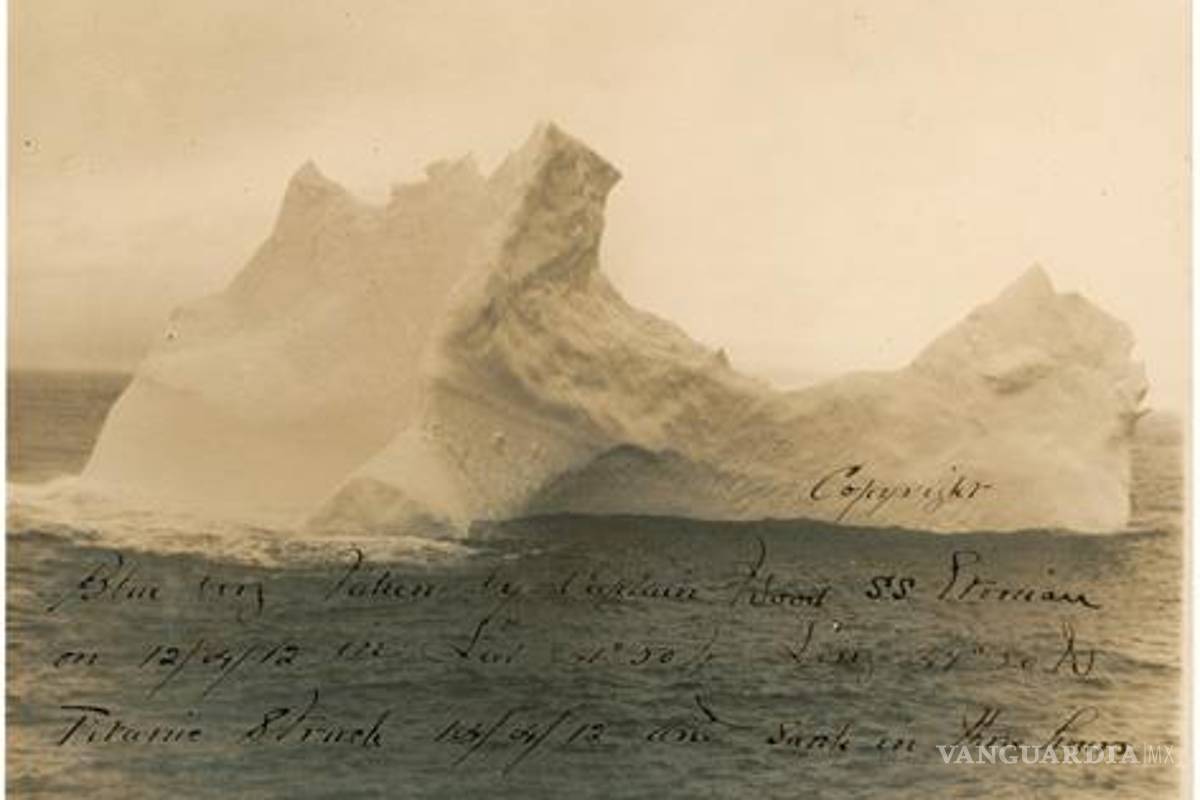 Copyright
Blue berg Taken by Captain Wood SS Etonian
on 12/04/12 in Lat 41° 50 N Long 49° 50 W
Titanic Struck 14/04/12 and sank in three hours
VANGUARDIA|MX